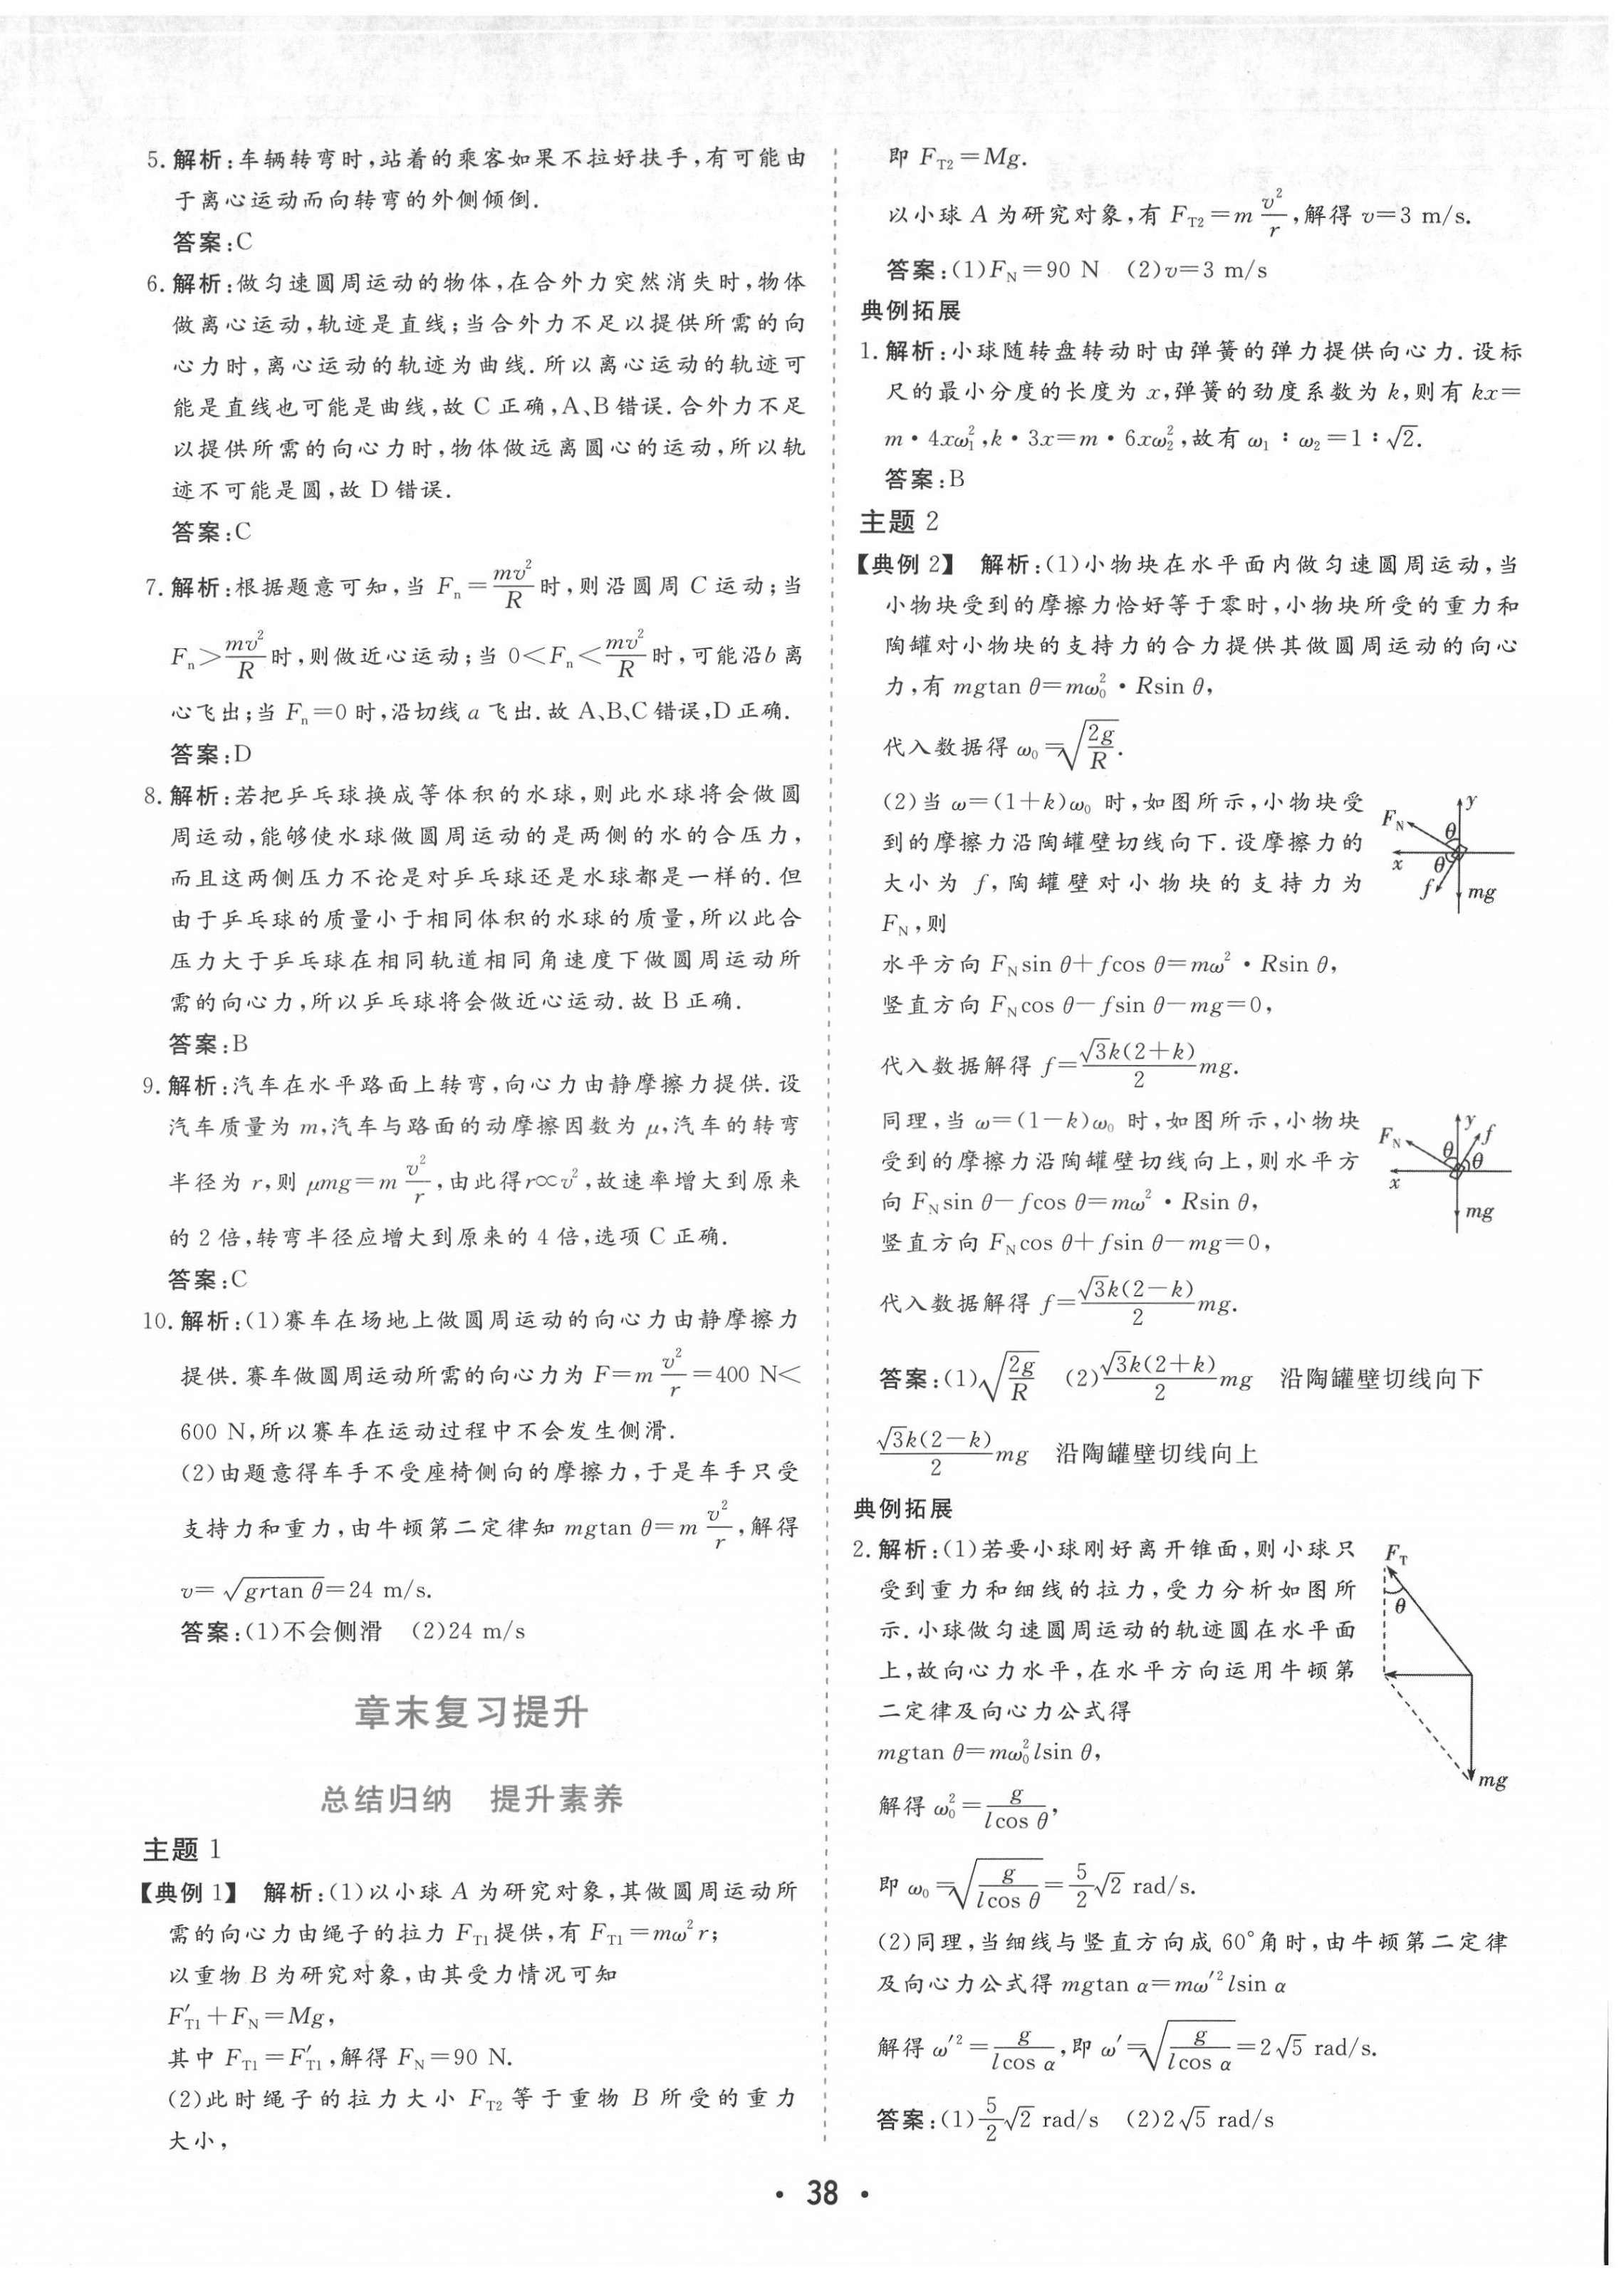 5. 解析:车辆转弯时,站着的乘客如果不拉好扶手,有可能由
于离心运动而向转弯的外侧倾倒.
答案:C
6. 解析:做匀速圆周运动的物体,在合外力突然消失时,物体
做离心运动,轨迹是直线;当合外力不足以提供所需的向
心力时,离心运动的轨迹为曲线.所以离心运动的轨迹可
能是直线也可能是曲线,故 C 正确,A、B 错误.合外力不足
以提供所需的向心力时,物体做远离圆心的运动,所以轨
迹不可能是圆,故 D 错误.
答案:C
7. 解析:根据题意可知,当 Fₙ=mv²/R 时,则沿圆周 C 运动;当
Fₙ>mv²/R 时,则做近心运动;当 0<Fₙ<mv²/R 时,可能沿 b 离
心飞出;当 Fₙ=0 时,沿切线 a 飞出.故 A、B、C 错误,D 正确.
答案:D
8. 解析:若把乒乓球换成等体积的水球,则此水球将会做圆
周运动,能够使水球做圆周运动的是两侧的水的合压力,
而且这两侧压力不论是对乒乓球还是水球都是一样的.但
由于乒乓球的质量小于相同体积的水球的质量,所以此合
压力大于乒乓球在相同轨道相同角速度下做圆周运动所
需的向心力,所以乒乓球将会做近心运动.故 B 正确.
答案:B
9. 解析:汽车在水平路面上转弯,向心力由静摩擦力提供.设
汽车质量为 m,汽车与路面的动摩擦因数为 μ,汽车的转弯
半径为 r,则 μmg=m v²/r,由此得 r∝v²,故速率增大到原来
的 2 倍,转弯半径应增大到原来的 4 倍,选项 C 正确.
答案:C
10. 解析:(1)赛车在场地上做圆周运动的向心力由静摩擦力
提供.赛车做圆周运动所需的向心力为 F=m v²/r=400 N<
600 N,所以赛车在运动过程中不会发生侧滑.
(2)由题意得车手不受座椅侧向的摩擦力,于是车手只受
支持力和重力,由牛顿第二定律知 mgtan θ=m v²/r,解得
v=√(grtan θ)=24 m/s.
答案:(1)不会侧滑 (2)24 m/s
章末复习提升
总结归纳 提升素养
主题 1
【典例 1】 解析:(1)以小球 A 为研究对象,其做圆周运动所
需的向心力由绳子的拉力 F_T1 提供,有 F_T1=mω²r;
以重物 B 为研究对象,由其受力情况可知
F′_T1+F_N=Mg,
其中 F_T1=F′_T1,解得 F_N=90 N.
(2)此时绳子的拉力大小 F_T2 等于重物 B 所受的重力
大小,
即 F_T2=Mg.
以小球 A 为研究对象,有 F_T2=m v²/r,解得 v=3 m/s.
答案:(1)F_N=90 N (2)v=3 m/s
典例拓展
1. 解析:小球随转盘转动时由弹簧的弹力提供向心力.设标
尺的最小分度的长度为 x,弹簧的劲度系数为 k,则有 kx=
m·4xω₁²,k·3x=m·6xω₂²,故有 ω₁∶ω₂=1∶√2.
答案:B
主题 2
【典例 2】 解析:(1)小物块在水平面内做匀速圆周运动,当
小物块受到的摩擦力恰好等于零时,小物块所受的重力和
陶罐对小物块的支持力的合力提供其做圆周运动的向心
力,有 mgtan θ=mω₀²·Rsin θ,
代入数据得 ω₀=√(2g/R).
(2)当 ω=(1+k)ω₀ 时,如图所示,小物块受
到的摩擦力沿陶罐壁切线向下.设摩擦力的
大小为 f,陶罐壁对小物块的支持力为
F_N,则
y
F_N
θ
x
θ
f
mg
水平方向 F_Nsin θ+fcos θ=mω²·Rsin θ,
竖直方向 F_Ncos θ-fsin θ-mg=0,
代入数据解得 f=√3k(2+k)/2 mg.
同理,当 ω=(1-k)ω₀ 时,如图所示,小物块
受到的摩擦力沿陶罐壁切线向上,则水平方
向 F_Nsin θ-fcos θ=mω²·Rsin θ,
y
f
F_N
θ
θ
x
mg
竖直方向 F_Ncos θ+fsin θ-mg=0,
代入数据解得 f=√3k(2-k)/2 mg.
答案:(1)√(2g/R) (2)√3k(2+k)/2 mg 沿陶罐壁切线向下
√3k(2-k)/2 mg 沿陶罐壁切线向上
典例拓展
2. 解析:(1)若要小球刚好离开锥面,则小球只
受到重力和细线的拉力,受力分析如图所
示.小球做匀速圆周运动的轨迹圆在水平面
上,故向心力水平,在水平方向运用牛顿第
二定律及向心力公式得
F_T
θ
mg
mgtan θ=mω₀²lsin θ,
解得 ω₀²=g/(lcos θ),
即 ω₀=√(g/(lcos θ))=5/2 √2 rad/s.
(2)同理,当细线与竖直方向成 60°角时,由牛顿第二定律
及向心力公式得 mgtan α=mω′²lsin α
解得 ω′²=g/(lcos α),即 ω′=√(g/(lcos α))=2√5 rad/s.
答案:(1)5/2 √2 rad/s (2)2√5 rad/s
· 38 ·